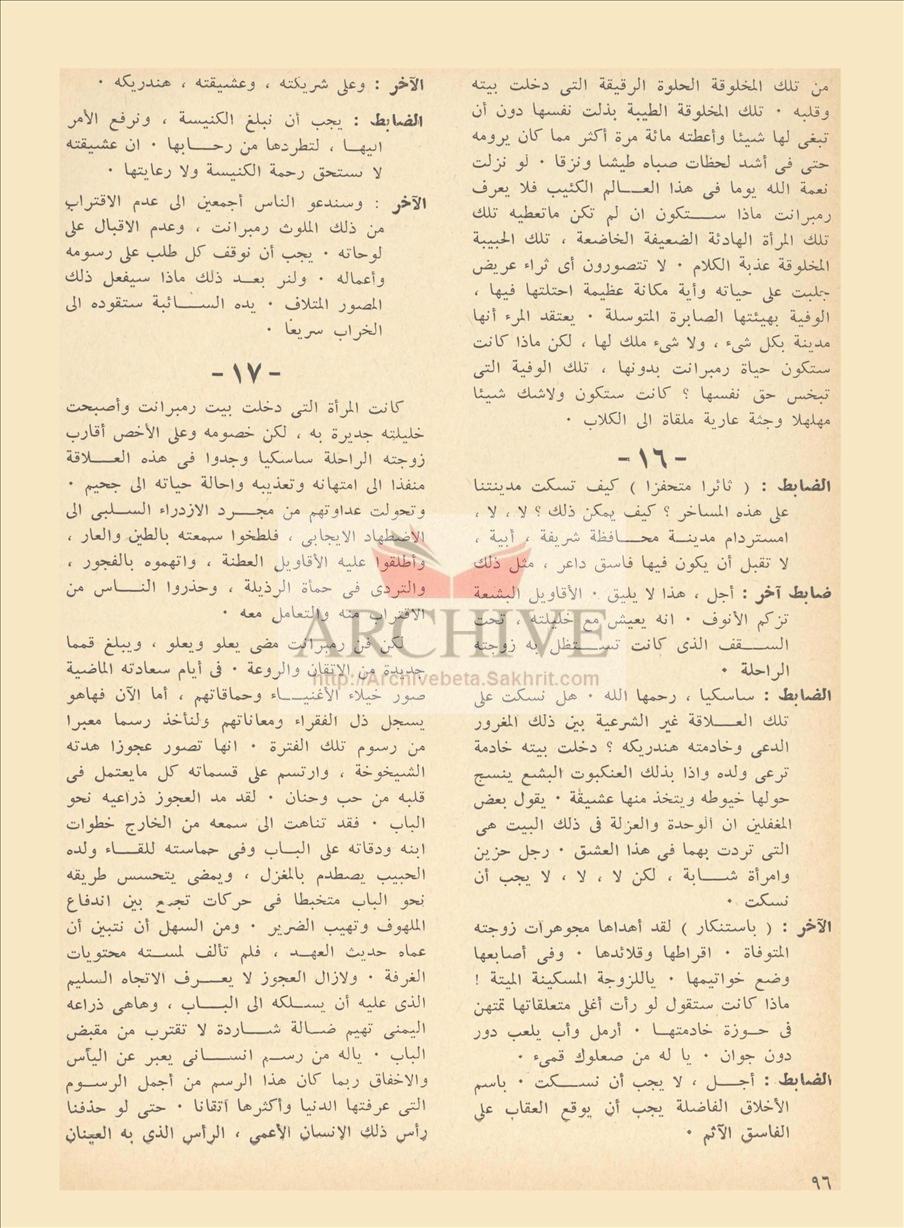 من تلك المخلوقة الحلوة الرقيقة التى دخلت بيته
وقلبه ٠ تلك المخلوقة الطيبة بذلت نفسها دون أن
تبغى لها شيئا وأعطته مائة مرة أكثر مما كان يرومه
حتى فى أشد لحظات صباه طيشا ونزقا ٠ لو نزلت
نعمة الله يوما فى هذا العالم الكئيب فلا يعرف
رمبرانت ماذا ستكون ان لم تكن ماتعطيه تلك
تلك المرأة الهادئة الضعيفة الخاضعة ، تلك الحبيبة
المخلوقة عذبة الكلام ٠ لا تتصورون أى ثراء عريض
جلبت على حياته وأية مكانة عظيمة احتلتها فيها ،
الوفية بهيئتها الصابرة المتوسلة ٠ يعتقد المرء أنها
مدينة بكل شىء ، ولا شىء ملك لها ، لكن ماذا كانت
ستكون حياة رمبرانت بدونها ، تلك الوفية التى
تبخس حق نفسها ؟ كانت ستكون ولاشك شيئا
مهلهلا وجثة عارية ملقاة الى الكلاب ٠
- ١٦ -
الضابط : ( ثائرا متحفزا ) كيف تسكت مدينتنا
على هذه المساخر ؟ كيف يمكن ذلك ؟ لا ، لا ،
امستردام مدينة محافظة شريفة ، أبية ،
لا تقبل أن يكون فيها فاسق داعر ، مثل ذلك
ضابط آخر : أجل ، هذا لا يليق ٠ الأقاويل البشعة
تزكم الأنوف ٠ انه يعيش مع خليلته ، تحت
السقف الذى كانت تستظل به زوجته
الراحلة ٠
الضابط : ساسكيا ، رحمها الله ٠ هل نسكت على
تلك العلاقة غير الشرعية بين ذلك المغرور
الدعى وخادمته هندريكه ؟ دخلت بيته خادمة
ترعى ولده واذا بذلك العنكبوت البشع ينسج
حولها خيوطه ويتخذ منها عشيقة ٠ يقول بعض
المغفلين ان الوحدة والعزلة فى ذلك البيت هى
التى تردت بهما فى هذا العشق ٠ رجل حزين
وامرأة شابة ، لكن لا ، لا ، لا يجب أن
نسكت ٠
الآخر : ( باستنكار ) لقد أهداها مجوهرات زوجته
المتوفاة ٠ اقراطها وقلائدها ٠ وفى أصابعها
وضع خواتيمها ٠ ياللزوجة المسكينة الميتة !
ماذا كانت ستقول لو رأت أغلى متعلقاتها تمتهن
فى حوزة خادمتها ٠ أرمل وأب يلعب دور
دون جوان ٠ يا له من صعلوك قمىء ٠
الضابط : أجل ، لا يجب أن نسكت ٠ باسم
الأخلاق الفاضلة يجب أن يوقع العقاب على
الفاسق الآثم ٠
الآخر : وعلى شريكته ، وعشيقته ، هندريكه ٠
الضابط : يجب أن نبلغ الكنيسة ، ونرفع الأمر
اليها ، لتطردها من رحابها ٠ ان عشيقته
لا تستحق رحمة الكنيسة ولا رعايتها ٠
الآخر : وسندعو الناس أجمعين الى عدم الاقتراب
من ذلك الملوث رمبرانت ، وعدم الاقبال على
لوحاته ٠ يجب أن نوقف كل طلب على رسومه
وأعماله ٠ ولنر بعد ذلك ماذا سيفعل ذلك
المصور المتلاف ٠ يده السائبة ستقوده الى
الخراب سريعا ٠
- ١٧ -
كانت المرأة التى دخلت بيت رمبرانت وأصبحت
خليلته جديرة به ، لكن خصومه وعلى الأخص أقارب
زوجته الراحلة ساسكيا وجدوا فى هذه العلاقة
منفذا الى امتهانه وتعذيبه واحالة حياته الى جحيم ٠
وتحولت عداوتهم من مجرد الازدراء السلبى الى
الاضطهاد الايجابى ، فلطخوا سمعته بالطين والعار ،
وأطلقوا عليه الأقاويل العطنة ، واتهموه بالفجور ،
والتردى فى حمأة الرذيلة ، وحذروا الناس من
الاقتراب منه والتعامل معه ٠
لكن فن رمبرانت مضى يعلو ويعلو ، ويبلغ قمما
جديدة من الاتقان والروعة ٠ فى أيام سعادته الماضية
صور خيلاء الأغنياء وحماقاتهم ، أما الآن فهاهو
يسجل ذل الفقراء ومعاناتهم ولنأخذ رسما معبرا
من رسوم تلك الفترة ٠ انها تصور عجوزا هدته
الشيخوخة ، وارتسم على قسماته كل مايعتمل فى
قلبه من حب وحنان ٠ لقد مد العجوز ذراعيه نحو
الباب ٠ فقد تناهت الى سمعه من الخارج خطوات
ابنه ودقاته على الباب وفى حماسته للقاء ولده
الحبيب يصطدم بالمغزل ، ويمضى يتحسس طريقه
نحو الباب متخبطا فى حركات تجمع بين اندفاع
الملهوف وتهيب الضرير ٠ ومن السهل أن نتبين أن
عماه حديث العهد ، فلم تألف لمسته محتويات
الغرفة ٠ ولازال العجوز لا يعرف الاتجاه السليم
الذى عليه أن يسلكه الى الباب ، وهاهى ذراعه
اليمنى تهيم ضالة شاردة لا تقترب من مقبض
الباب ٠ ياله من رسم انسانى يعبر عن اليأس
والاخفاق ربما كان هذا الرسم من أجمل الرسوم
التى عرفتها الدنيا وأكثرها اتقانا ٠ حتى لو حذفنا
رأس ذلك الانسان الأعمى ، الرأس الذي به العينان
٩٦
ARCHIVE
http://Archivebeta.Sakhrit.com